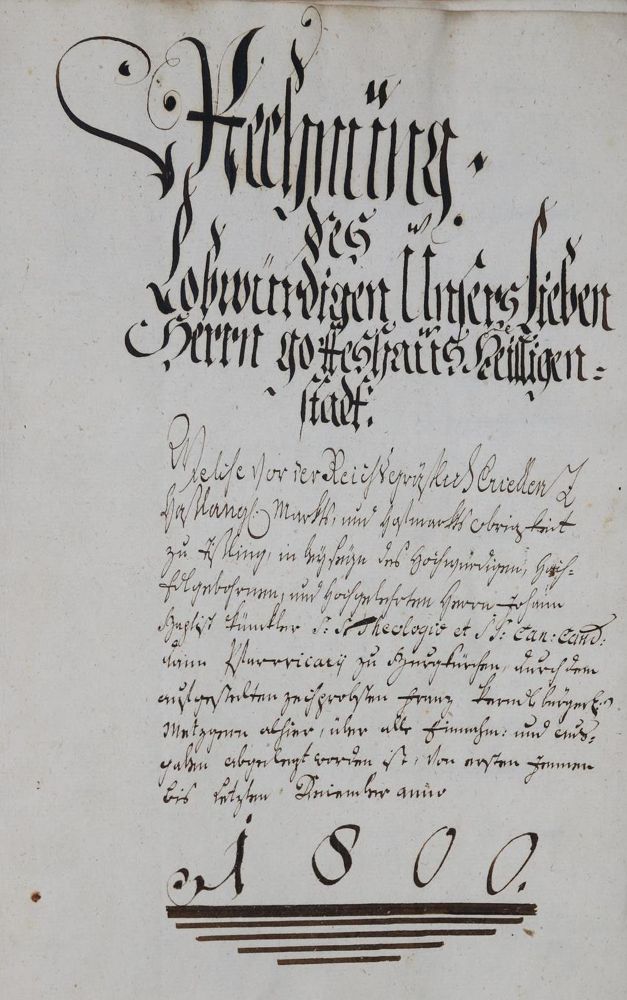 Rechnüng.
des
Lobwürdigen Unsers Lieben
Herrn gotteshaüs Heilligen=
stadt.
Welche vor der Reichsgräflich
Markts, und Hofmarkts obrigkeit
zu Tisling, in beyseyn des Hochwürdigen, Hoch=
Edlgebohrnen, und Hochgelehrten Herrn Johann
Baptist Künckler S: S: Theologiæ et SS: Can: Cand:
dann Pfarrvicarij zu Burgkürchen, durch den
aufgestelten zechprobsten Franz bürgerl:
Metzgern alhier, über alle Einnahm: und aus=
gaben abgelegt worden ist, von ersten Jenner
bis letzten December anno
1800.